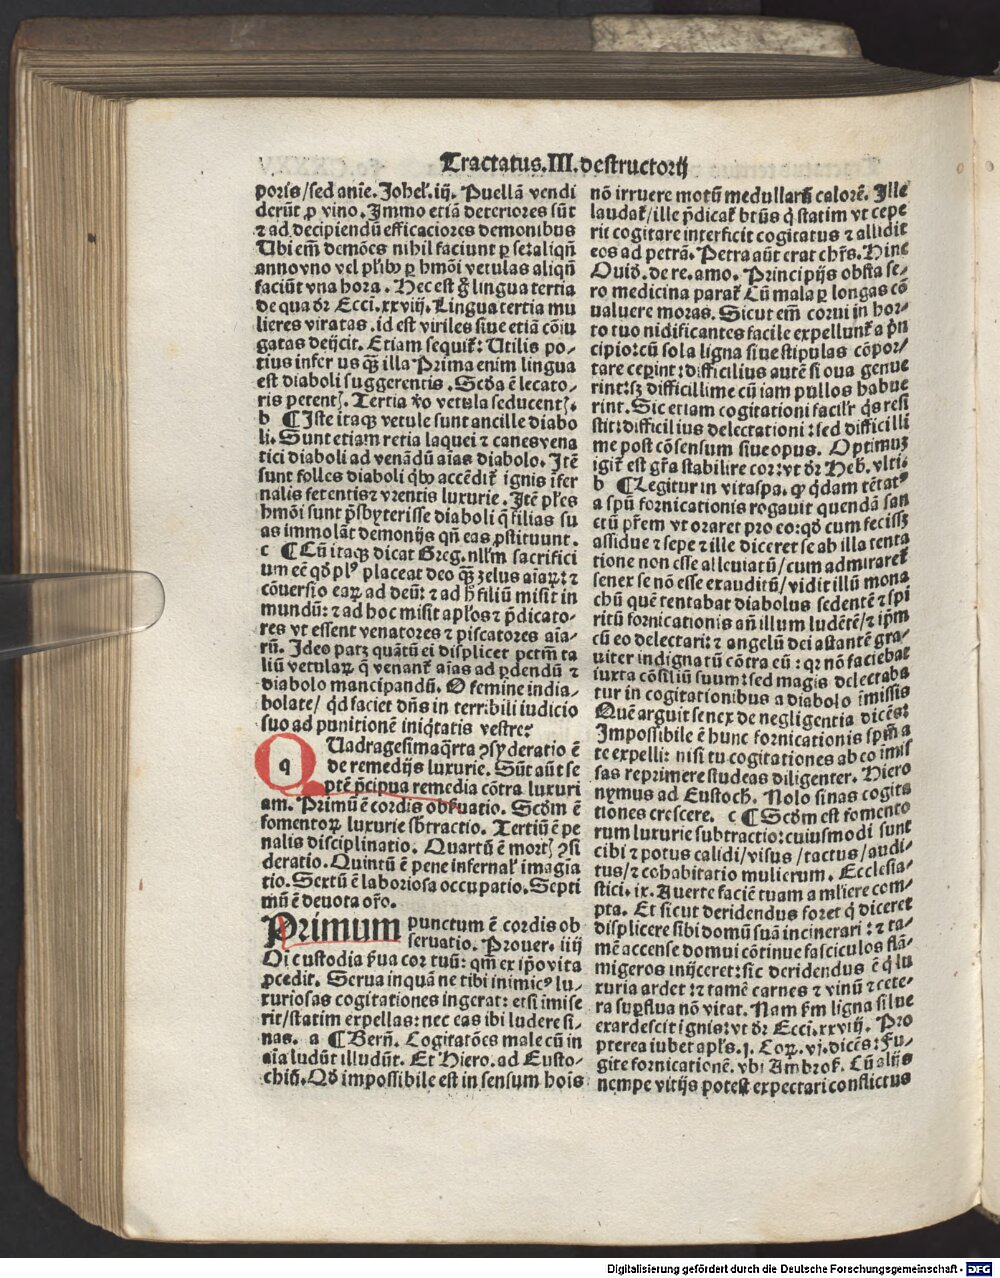 Tractatus.III.destructorij
poris/sed anīe. Johel̕.iij. Puellā vendi
derūt ꝓ vino. Immo etiā deteriores sūt
⁊ ad decipiendū efficaciores demonibus
Ubi em̄ demōes nihil faciunt ꝑ se:aliqn̄
anno vno vel pl̕ibꝰ ꝑ hmōi vetulas aliqn̄
faciūt vna hora. Hec est g̊ lingua tertia
de qua dr̄ Ecci.xxviij. Lingua tertia mu
lieres viratas.id est viriles siue etiā cōiu
gatas deijcit. Etiam sequit̄: Utilis po-
tius infer us qꝫ illa Prima enim lingua
est diaboli suggerentis. Scd̄a ē lecato-
ris petentꝭ. Tertia v̊o vetula seducentꝭ.
b ¶ Iste itaqꝫ vetule sunt ancille diabo
li. Sunt etiam retia laquei ⁊ canes vena
tici diaboli ad venādū aīas diabolo. Itē
sunt folles diaboli qͥbꝰ accēdit̄ ignis īfer
nalis fetentis ⁊ vrentis luxurie. Itē pl̄es
hmōi sunt p̄sbyterisse diaboli q̄ filias su
as immolāt demonijs qn̄ eas ꝓstituunt.
c ¶ Cū itaqꝫ dicat Greg. nllm̄ sacrifici
um eē qd̄ plꝰ placeat deo qꝫ zelus aīaꝝ: ⁊
cōuersio eaꝝ ad deū: ⁊ ad h̄ filiū misit in
mundū: ⁊ ad hoc misit apl̄os ⁊ p̄dicato-
res vt essent venatores ⁊ piscatores aīa-
rū. Ideo patꝫ quātū ei displicet pctm̄ ta
liū vetulaꝝ q̄ venant̄ aīas ad ꝑdendū ⁊
diabolo mancipandū. O femine india-
bolate/ qͥd faciet dn̄s in terribili iudicio
suo ad punitionē iniqͥtatis vestre?
QUadragesimaqͣrta ꝯsyderatio ē
q
de remedijs luxurie. Sūt aūt se
ptē p̄cipua remedia cōtra luxuri
am. Primū ē cordis obꝰuatio. Scd̄m ē
fomentoꝝ luxurie sb̄tractio. Tertiū ē pe
nalis disciplinatio. Quartū ē mortꝭ ꝯsi
deratio. Quintū ē pene infernal̕ imagīa
tio. Sextū ē laboriosa occupatio. Septi
mū ē deuota or̄o.
Primum punctum ē cordis ob
seruatio. Prouer. iiij
Oī custodia ẜua cor tuū: qm̄ ex ip̄o vita
ꝓcedit. Serua inquā ne tibi inimicꝰ lu-
xuriosas cogitationes ingerat: et si imise
rit/statim expellas: nec eas ibi ludere si-
nas. a ¶ Bern̄. Cogitatōes male cū in
aīa ludūt illudūt. Et Hiero. ad Eusto-
chiū. Qd̄ impossibile est in sensum hoīs
nō irruere motū medullarū calorē. Ille
laudat̄/ille p̄dicat̄ btūs q̇ statim vt cepe
rit cogitare interficit cogitatus ⁊ allidit
eos ad petrā. Petra aūt erat chr̄s. Hinc
Ouid. de re. amo. Principijs obsta se-
ro medicina parat̄ Cū mala ꝑ longas cō
ualuere moras. Sicut em̄ corui in hor-
to tuo nidificantes facile expellunt̄ a p̄n
cipio:cū sola ligna siue stipulas cōpor-
tare ceꝑint: difficilius autē si oua genue
rint:sꝫ difficillime cū iam pullos habue
rint. Sic etiam cogitationi facil̕r qͥs resi
stit: difficilius delectationi: sed difficilli
me post cōsensum siue opus. Optimuꝫ
igit̄ est gr̄a stabilire cor:vt dr̄ Heb. vlti.
b ¶ Legitur in vitaspa. ꝙ qͥdam tētatꝰ
a spū fornicationis rogauit quendā san
ctū pr̄em vt oraret pro eo: qd̄ cum fecissꝫ
assidue ⁊ sepe ⁊ ille diceret se ab illa tenta
tione non esse alleuiatū/cum admiraret̄
senex se nō esse exauditū/ vidit illū mona
chū quē tentabat diabolus sedentē ⁊ spi
ritū fornicationis an̄ illum ludētē/ ⁊ ip̄m
cū eo delectari: ⁊ angelū dei astantē gra-
uiter indignatū cōtra eū: qꝛ nō faciebat
iuxta cōsiliū suum: sed magis delectaba
tur in cogitationibus a diabolo īmissis
Quē arguit senex de negligentia dicēs:
Impossibile ē hunc fornicationis spm̄ a
te expelli: nisi tu cogitationes ab eo imis
sas reprimere studeas diligenter. Hiero
nymus ad Eustoch̄. Nolo sinas cogita
tiones crescere. c ¶ Scd̄m est fomento
rum luxurie subtractio: cuiusmodi sunt
cibi ⁊ potus calidi/visus/tactus/audi-
tus/ ⁊ cohabitatio mulierum. Ecclesia-
stici. ix. Auerte faciē tuam a ml̕iere com-
pta. Et sicut deridendus foret q̇ diceret
displicere sibi domū suā incinerari: ⁊ ta-
mē accense domui cōtinue fasciculos flā-
migeros inijceret: sic deridendus ē q̇ lu
xuria ardet: ⁊ tamē carnes ⁊ vinū ⁊ cete-
ra suꝑflua nō vitat. Nam ẜm ligna silue
exardescit ignis: vt dr̄ Ecci.xxviij. Pro
pterea iubet apl̄s.j. Coꝝ. vj. dicēs: Fu-
gite fornicationē. vbi Ambros̄. Cū alijs
nempe vitijs potest expectari conflictus
Digitalisierung gefördert durch die Deutsche Forschungsgemeinschaft - DFG